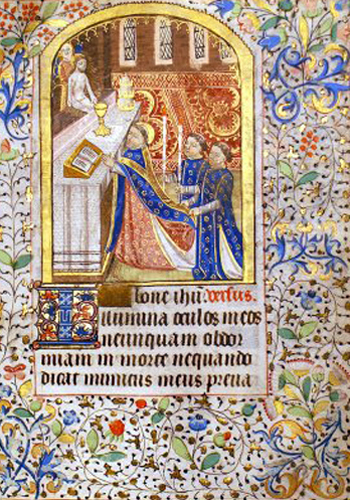 O bone ihu: Versus.
Illumina oculos meos
neunquam obdor
miam in morte nequando
dicat inimicus meus preua